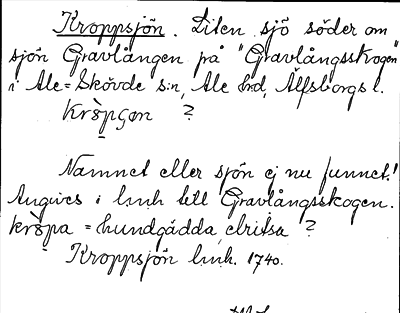 Kroppsjön. Liten sjö söder om
sjön Gravlången på "Gravlångsskogen"
i Ale=Skövde s:n, Ale hrd, Älfsborgs l.
?
Namnet eller sjön ej nu funnet!
Angives i l.m.h. till Gravlångsskogen.
kröpa = hundgädda, elritsa ?
Kroppsjön l.m.h. 1740.